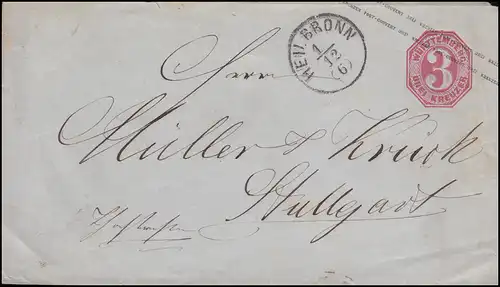 HEILBRONN
1/12
6)
WÜRTTEMBERG
3
DREI KREUZER
Herrn
Müller & Kruck
Stuttgart